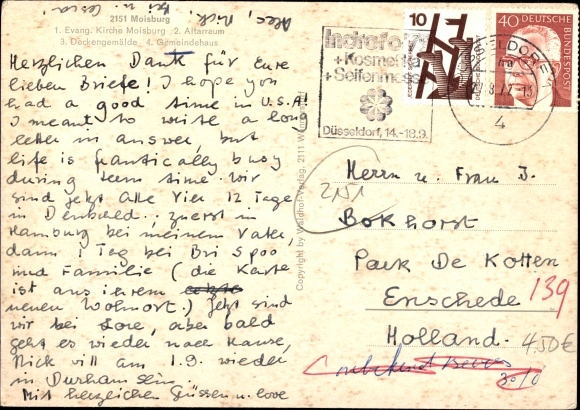 Alec, Nick, Bri u. Cora!
2151 Moisburg
1. Evang. Kirche Moisburg 2. Altarraum
3. Deckengemälde 4. Gemeindehaus
Herzlichen Dank für Eure
lieben Briefe! I hope you
had a good time in U.S.A!
I meant to write a long
letter in answer, but
life is frantically busy
during term time. Wir
sind jetzt alle Vier 12 Tage
in Denbald. zuerst in
Hamburg bei meinem Vater,
dann 1 Tag bei Bri Spoo
und Familie (die Karte
ist aus ihrem
neuen Wohnort.) Jetzt sind
wir bei Lore, aber bald
geht es wieder nach Hause,
Nick will am 1.9. wieder
in Durham sein
Mit herzlichen Grüssen u. love
Copyright by Waldhof-Verlag, 2111
Indrofo
+Kosmetika
+Seifenmesse
Düsseldorf, 14.-18.9.
10
40
DEUTSCHE
BUNDESPOST
DÜSSELDORF
4
2151
Herrn u. Frau J.
Bokhorst
Park De Kotten
Enschede
139
Holland
4.50€